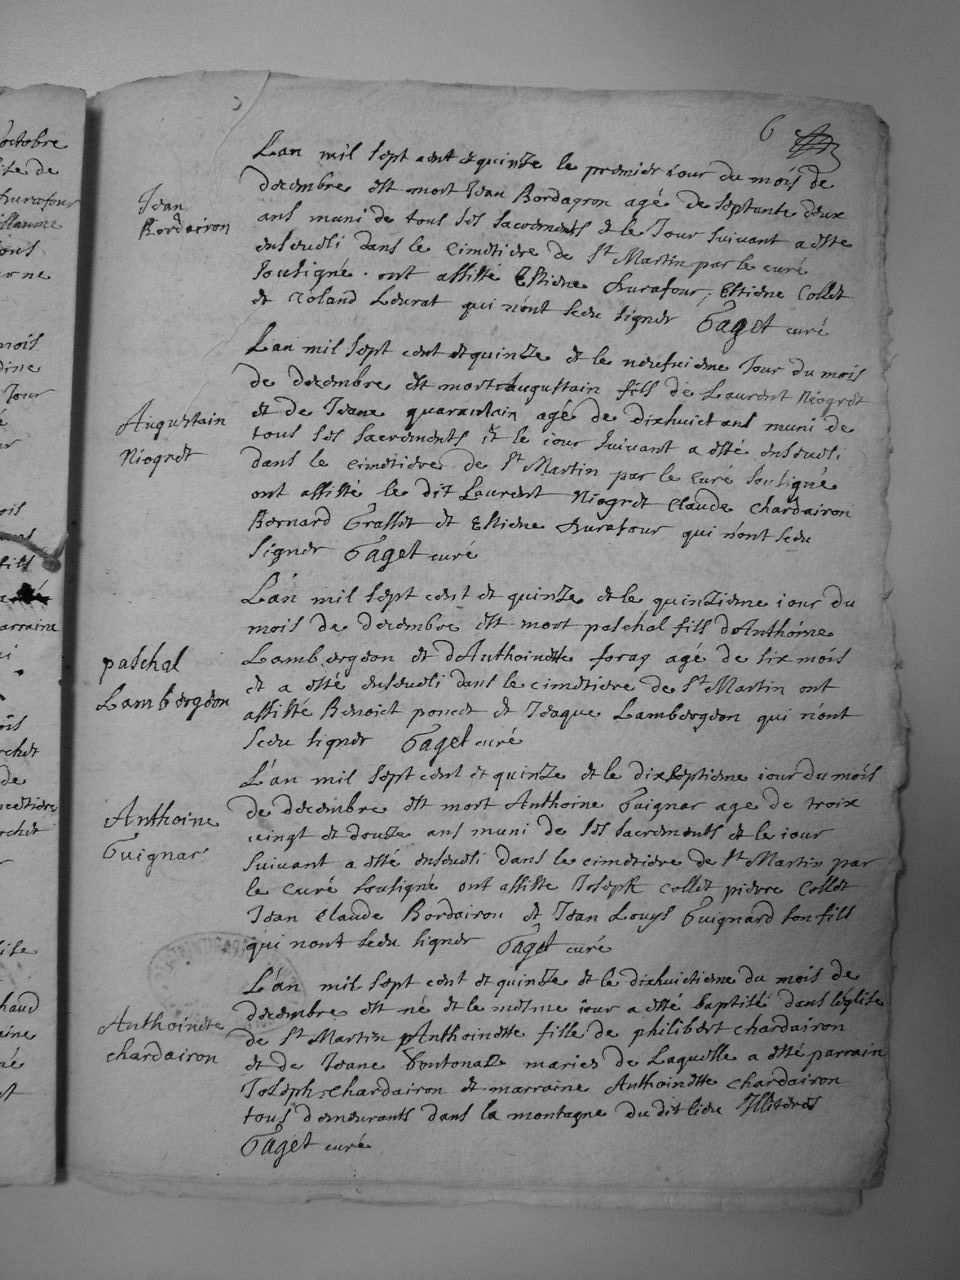 6
Jean
Bordairon
Lan mil sept cent et quinze le premier iour du mois de
decembre est mort Jean Bordayron agé de septante deux
ans muni de tous ses sacrements et le Jour suivant a esté
enseueli dans le cimetiere de St Martin par le curé
sousigné . ont assisté Estiene Durafour, Estiene Collet
et roland Lourat qui n'ont sceu signer Gaget curé
Augustain
Niogret
Lan mil sept cent et quinze et le neufuieme Jour du mois
de decembre est mort Augustain fils de Laurent Niogret
et de Jeane quarantain agé de dixhuict ans muni de
tous ses sacrements et le iour suivant a esté enseueli
dans le cimetiere de St Martin par le curé sousigné
ont assisté le dit Laurent Niogret Claude Chardairon
Bernard Grasset et Estiene Durafour qui n'ont sceu
signer Gaget curé
paschal
Lambergeon
L'an mil sept cent et quinze et le quinzieme iour du
mois de decembre est mort paschal fils d'Anthoine
Lambergeon et d'Anthoinette foray agé de six mois
et a esté enseueli dans le cimetiere de St Martin ont
assisté Benoict poncet et Jeaque Lambergeon qui n'ont
sceu signer Gaget curé
Anthoine
Guignar
L'an mil sept cent et quinze et le dixseptieme iour du mois
de decembre est mort Anthoine Guignar age de troix
vingt et douze ans muni de ses sacrements et le iour
suivant a esté enseueli dans le cimetiere de St Martin par
le curé sousigné ont assisté Joseph Collet pierre Collet
Jean Claude Bordairon et Jean Louys Guignard son fils
qui n'ont sceu signer Gaget curé
Anthoinette
chardairon
L'an mil sept cent et quinze et le dixhuictieme du mois de
decembre est né et le mesme iour a esté baptisé dans l'eglise
de St Martin Anthoinette fille de philibert chardairon
et de Jeane Fontenaz maries de Laquelle a esté parrain
Joseph chardairon et marraine Anthoinette chardairon
tous demeurants dans la montagne du dit lieu Illiterés
Gaget curé